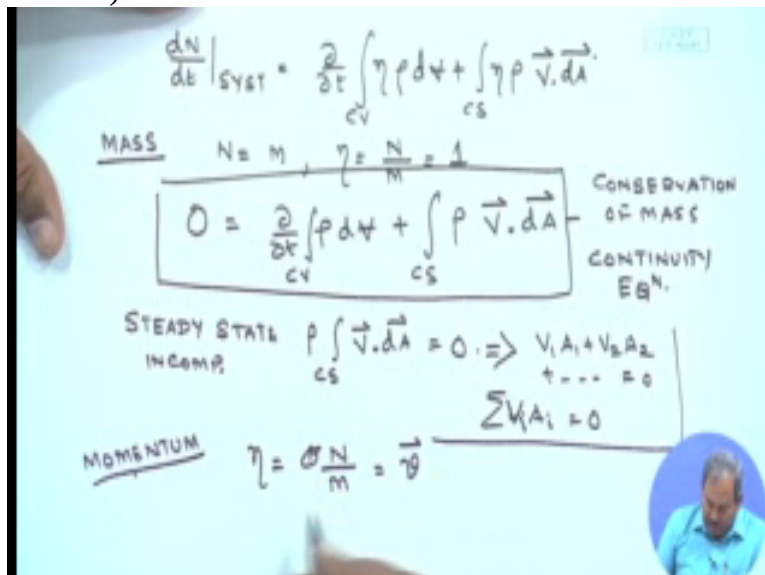 dN/dt|SYST = ∂/∂t ∫CV ηρd∀ + ∫CS ηρ V⃗.dA⃗
MASS N = m, η = N/M = 1
0 = ∂/∂t ∫CV ρd∀ + ∫CS ρ V⃗.dA⃗
CONSERVATION
OF MASS
CONTINUITY
EQN.
STEADY STATE
INCOMP.
ρ ∫CS V⃗.dA⃗ = 0 .=> V₁A₁ + V₂A₂
+ - - - = 0
∑ViAi = 0
MOMENTUM η = N/M = v⃗